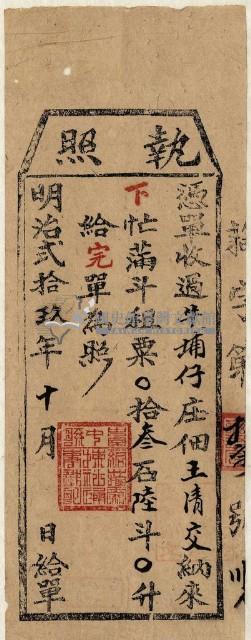 執照
憑單收過牛埔仔庄佃王清交納來
下忙滿斗租粟〇拾叁石陸斗〇升
給完單為照
明治弍拾玖年十月 日給單